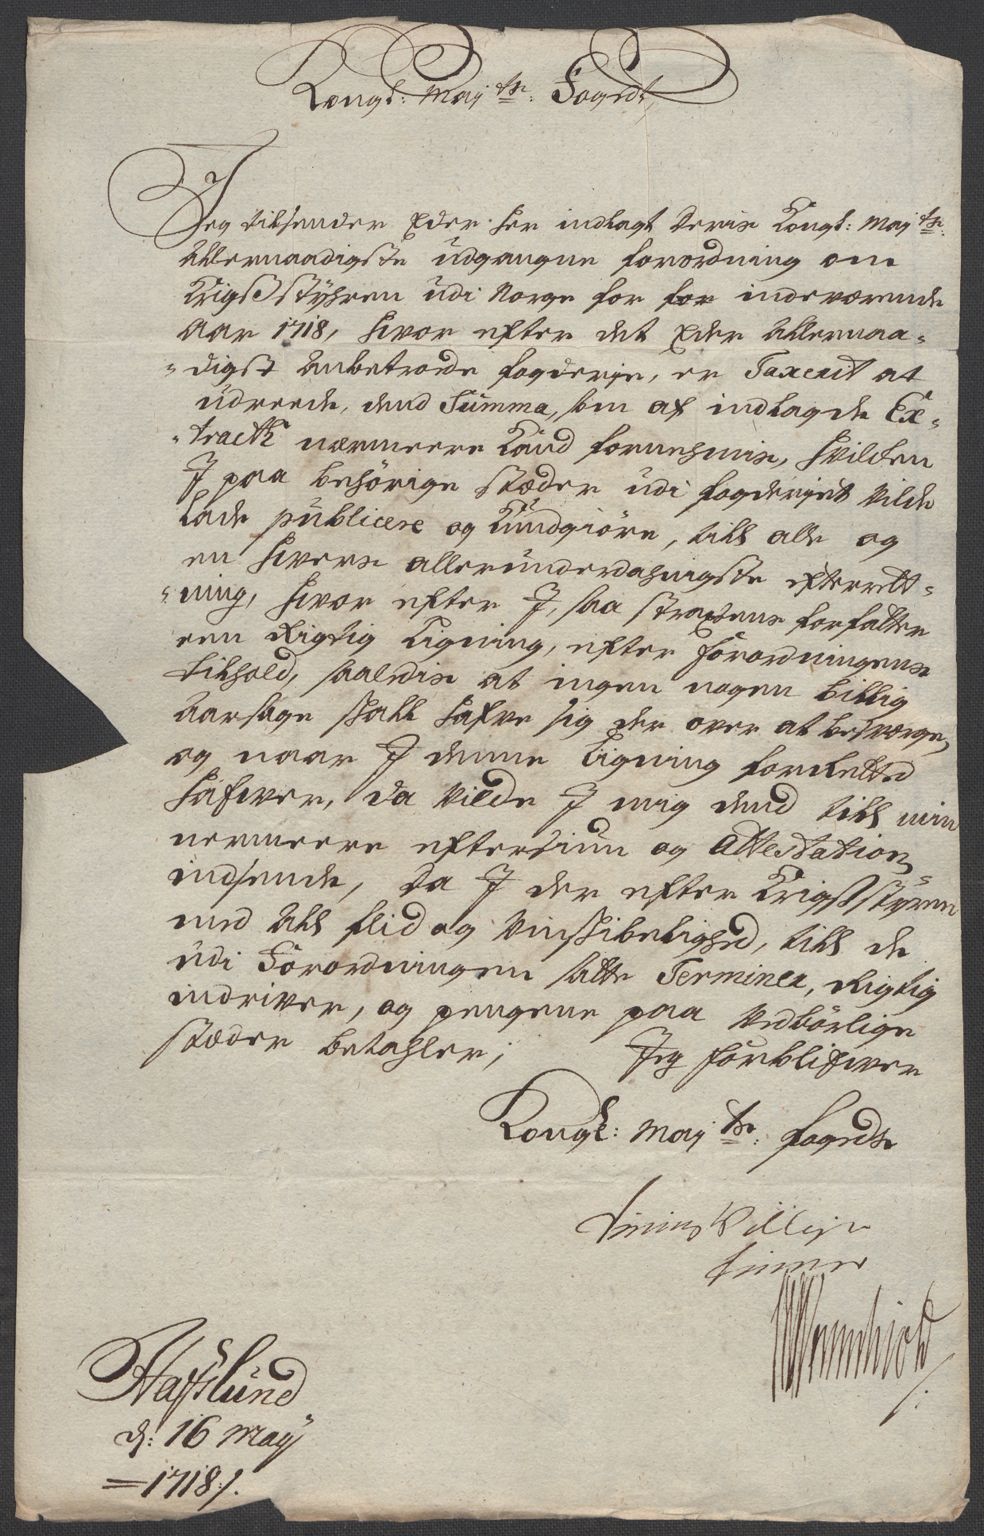 Kongl: May.ts: Fogdt,
Jeg tilsender Eder her indlagt deris Kongl: May.ts:
Allernaadigste udgangne forordning om
Krigsstyhren udi Norge for for indeværende
Aar 1718, hvor efter det Eder Allernaa-
-digst Anbetroede fogderje, er Taxerit at
udreede, dend Summa, som af indlagde Ex-
-tract nærmeere Kand fornehmis, hvilken
J paa behörige stæder udi fogderjet vilde
lade publicere og Kundgiöre, till alle og
en hvers allerunderdahnigste efterrett-
-ning, hvor efter J, saa straxens forfatter
een Rigtig Ligning, efter forordningens
tilhold, saaledis at ingen nogen billig
Aarsage skall hafve sig der over at besværge,
og naar J denne Ligning forretted
hafwer, da vilde J mig dend till min
nermeere eftersiun og Attestation
indsende, da J der efter Krigsstyren
med All flid og Vinskibelighed, till de
udi Forordningen satte Terminer, Rigtig
indriver, og pengene paa vedbörlige
stæder betahler; Jeg forblifwer
Kongl: May.ts: fogdts
tienstvillige
tienner
Hafslund
d: 16 May
1718/.